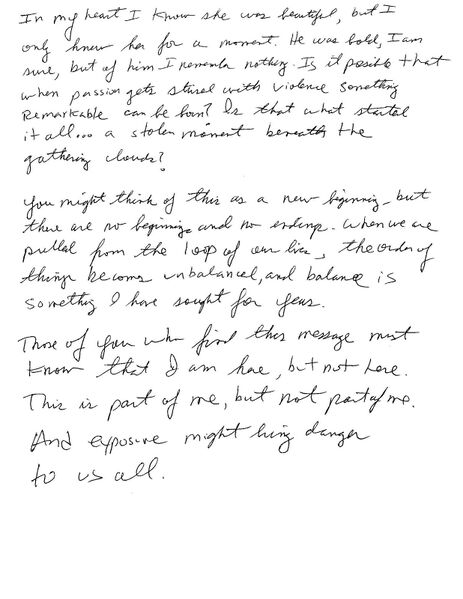 In my heart I know she was beautiful, but I
only knew her for a moment. He was bold, I am
sure, but of him I remember nothing. Is it possible that
when passion gets stirred with violence something
Remarkable can be born? Is that what started
it all... a stolen moment beneath the
gathering clouds?
You might think of this as a new beginning, but
there are no beginnings and no endings. When we are
pulled from the loop of our lives, the order of
things becomes unbalanced, and balance is
something I have sought for years.
Those of you who find this message must
know that I am here, but not here.
This is part of me, but not part of me.
And exposure might bring danger
to us all.